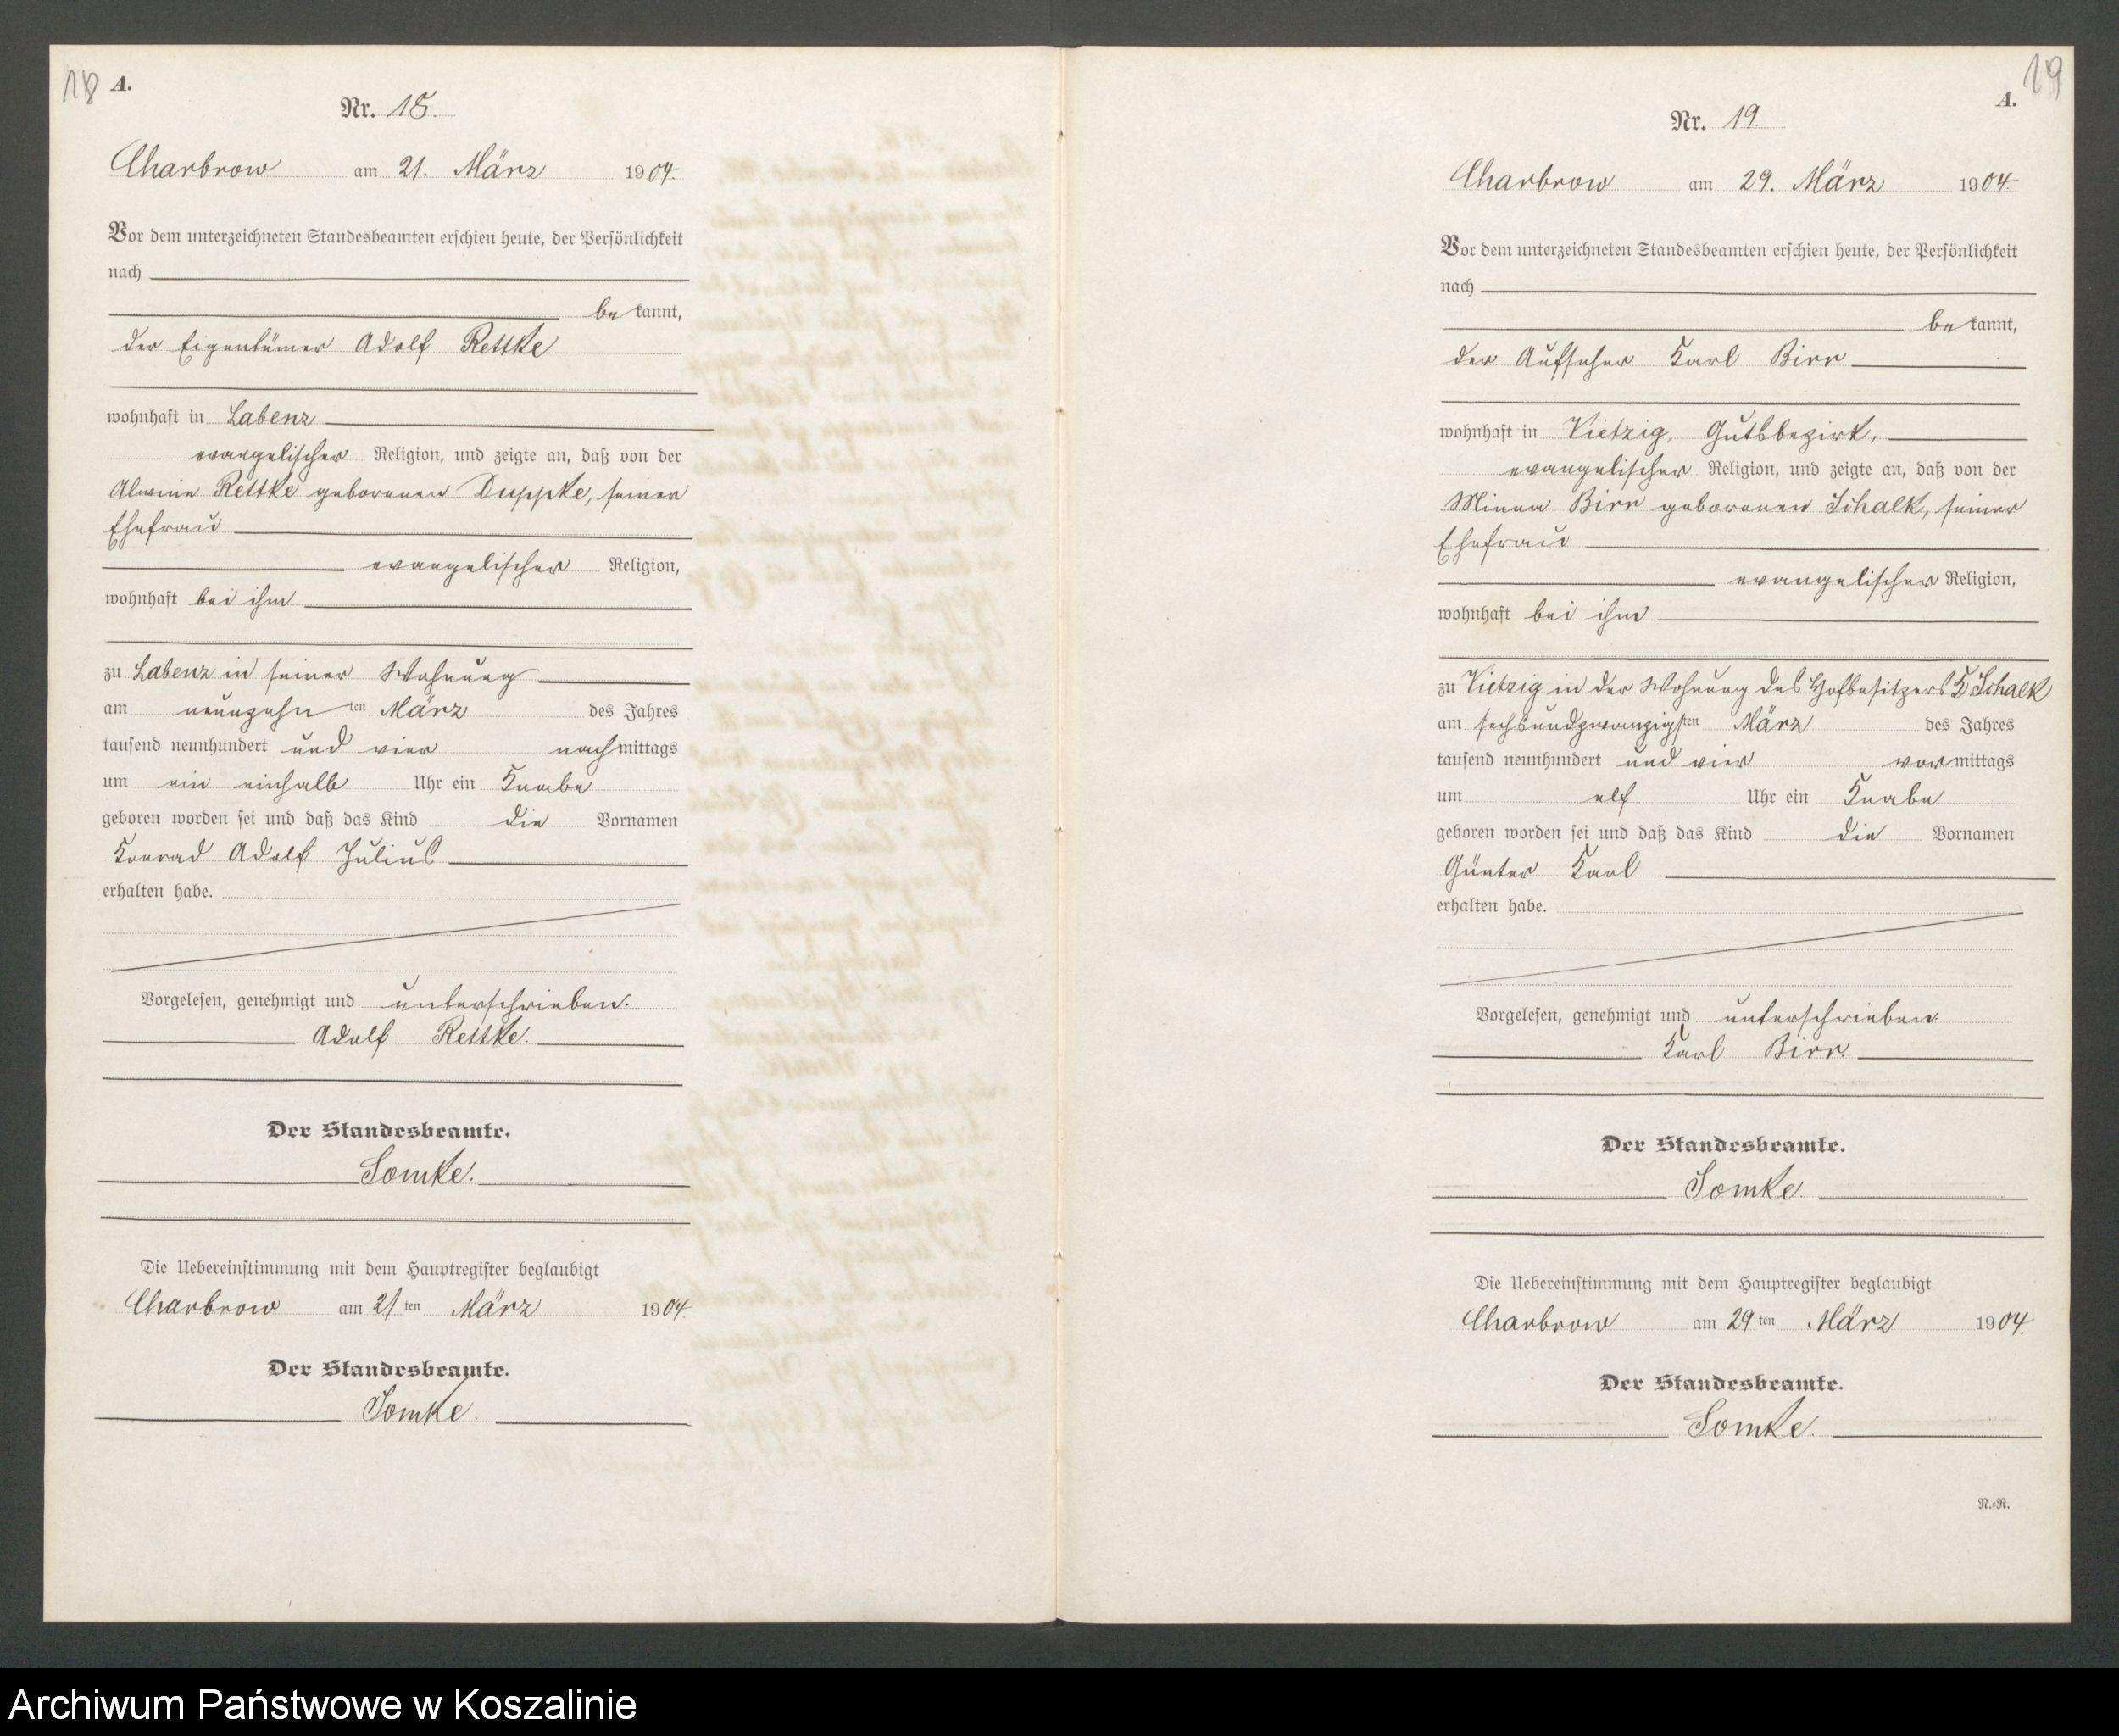 18 A.
Nr. 18.
Charbrow am 21. März 1904.
Vor dem unterzeichneten Standesbeamten erschien heute, der Persönlichkeit
nach
bekannt,
der Eigentümer Adolf Rettke
wohnhaft in Labenz
evangelischer Religion, und zeigte an, daß von der
Alwine Rettke geborenen Duppke, seiner
Ehefrau
evangelischer Religion,
wohnhaft bei ihm
zu Labenz in seiner Wohnung
am neunzehnten März des Jahres
tausend neunhundert und vier nachmittags
um ein einhalb Uhr ein Knabe
geboren worden sei und daß das Kind die Vornamen
Konrad Adolf Julius
erhalten habe.
Vorgelesen, genehmigt und unterschrieben.
Adolf Rettke.
Der Standesbeamte.
Somke.
Die Uebereinstimmung mit dem Hauptregister beglaubigt
Charbrow am 21ten März 1904.
Der Standesbeamte.
Somke.
19
A.
Nr. 19.
Charbrow am 29. März 1904.
Vor dem unterzeichneten Standesbeamten erschien heute, der Persönlichkeit
nach
bekannt,
der Aufseher Karl Birr
wohnhaft in Vietzig, Gutsbezirk,
evangelischer Religion, und zeigte an, daß von der
Minna Birr geborenen Schalk, seiner
Ehefrau
evangelischer Religion,
wohnhaft bei ihm
zu Vietzig in der Wohnung des Hofbesitzers K Schalk
am sechsundzwanzigsten März des Jahres
tausend neunhundert und vier vormittags
um elf Uhr ein Knabe
geboren worden sei und daß das Kind die Vornamen
Günter Karl
erhalten habe.
Vorgelesen, genehmigt und unterschrieben
Karl Birr.
Der Standesbeamte.
Somke.
Die Uebereinstimmung mit dem Hauptregister beglaubigt
Charbrow am 29ten März 1904.
Der Standesbeamte.
Somke.
N.=R.
Archiwum Państwowe w Koszalinie